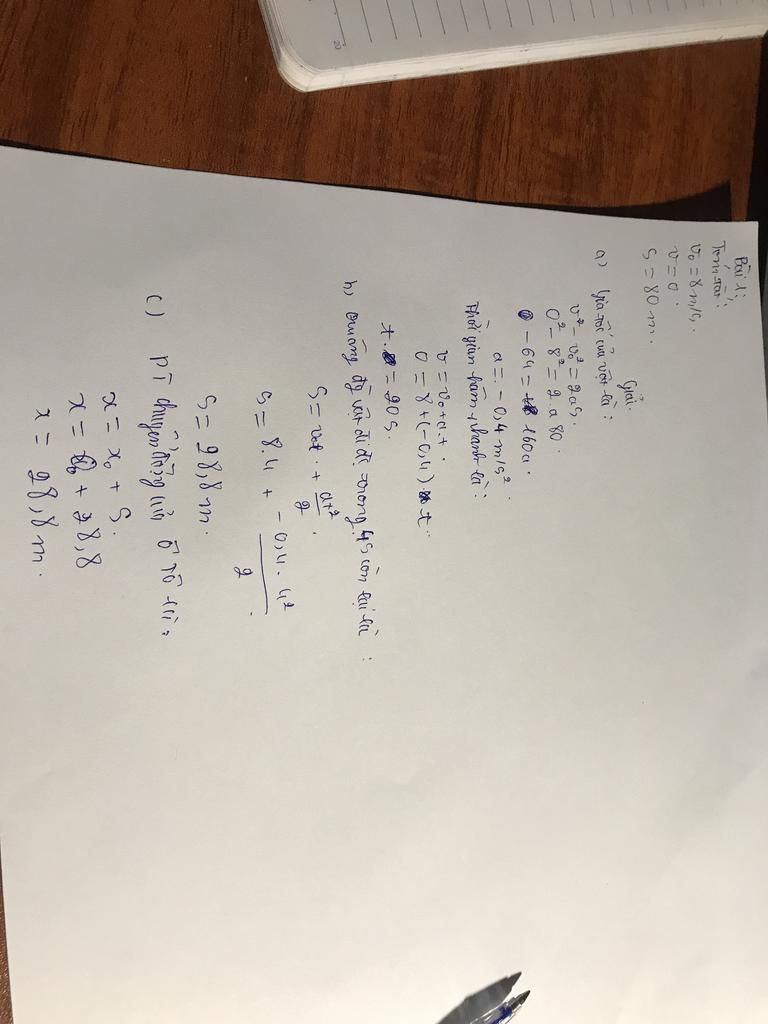 Bài 1:
Tóm tắt:
v₀ = 8 m/s.
v = 0.
S = 80 m.
Giải
a) Gia tốc của vật là:
v² - v₀² = 2aS.
0² - 8² = 2.a 80.
- 64 = 160a.
a = - 0,4 m/s².
Thời gian hãm phanh là:
v = v₀ + a.t.
0 = 8 + (-0,4). t.
t = 20 s.
b) Quãng đg vật đi đc trong 4s còn lại là:
S = v₀t + at²/2.
S = 8.4 + -0,4.4²/2.
S = 28,8 m.
c) PT chuyển động của ô tô là:
x = x₀ + S.
x = 0 + 28,8
x = 28,8 m.
20